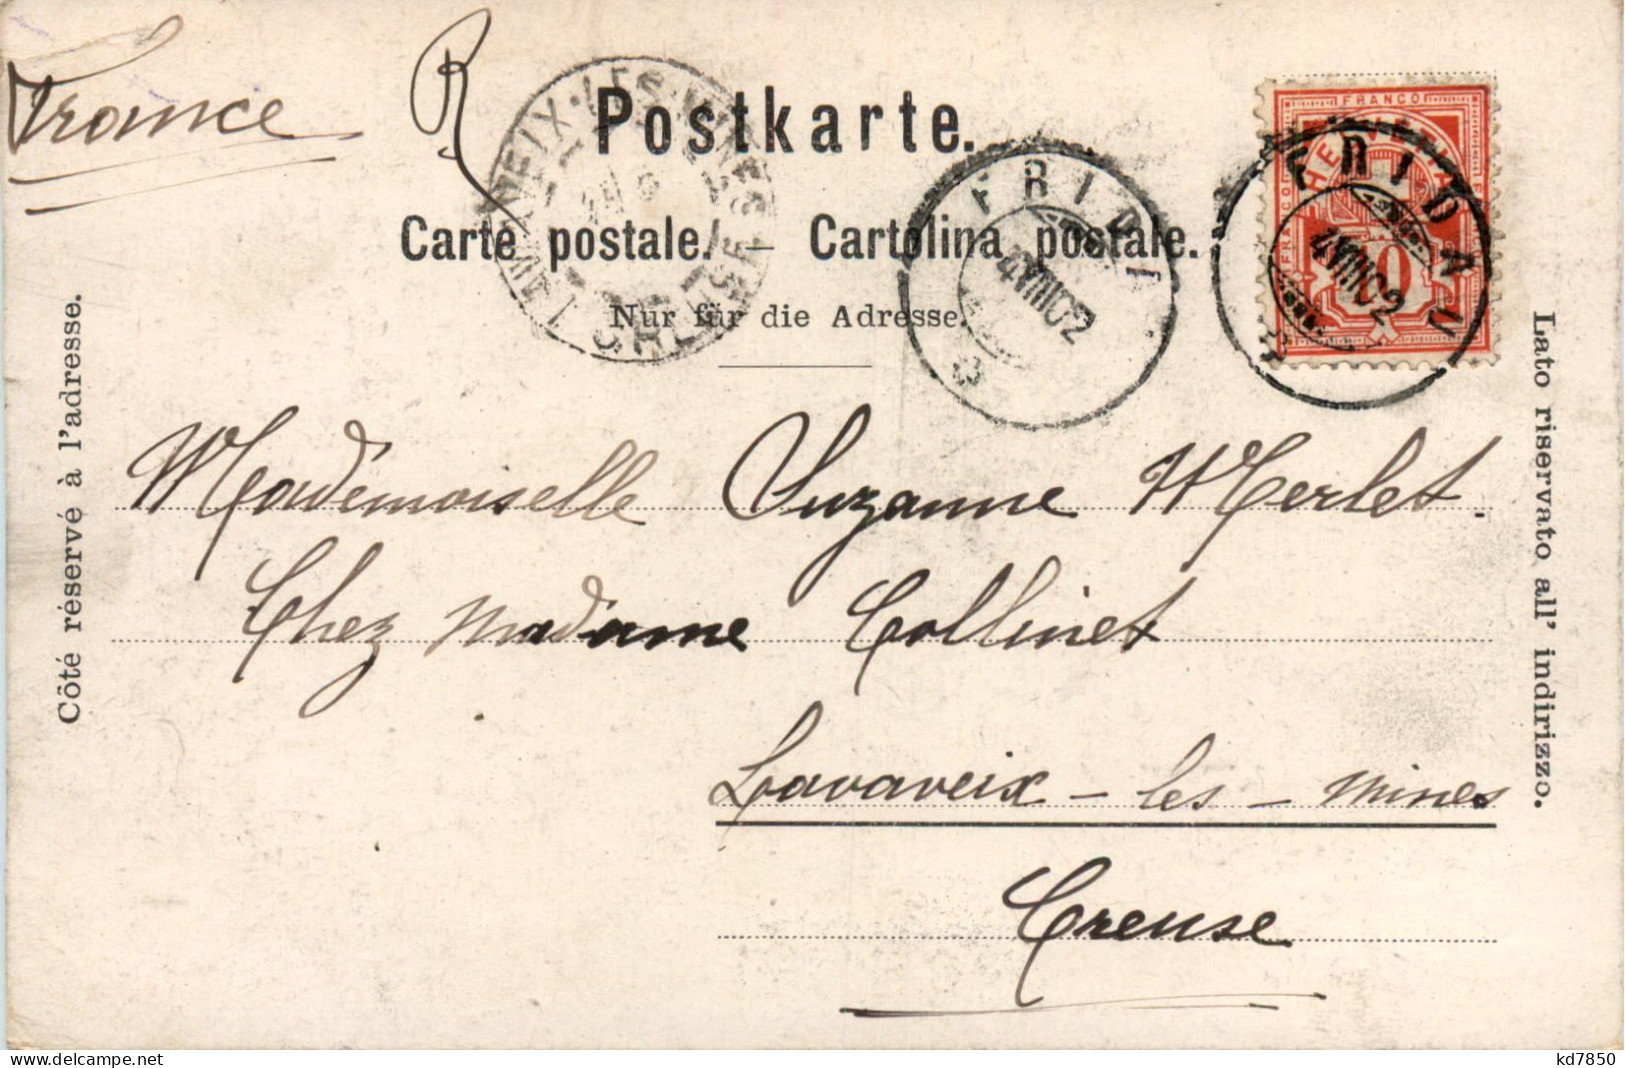 France
R
Postkarte.
Carte postale. — Cartolina postale.
Nur für die Adresse.
Côté réservé à l'adresse.
Lato riservato all' indirizzo.
FRANCO
HELVETIA
10
FRIDAU
4 VIII 02
FRIDAU
4 VIII 02
LAVAVEIX-LES-MINES
Mademoiselle Suzanne Merlet.
Chez Madame Collinet
Lavaveix - les - Mines
Creuse
https://www.delcampe.net
kd7850